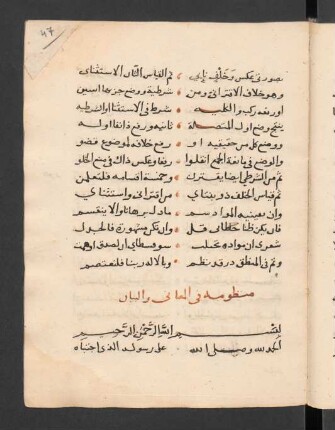 ٤٧
بصورتي عكس وخلف يلي • ثم القياس الثان الاستثناي
وهو خلاف الاقتراني ومن • شرطية ووضع جزءها
او رفعه ركبوا والكليه • شرط في الاستثنا او الشرطيه
ينتج وضع اول المتصلة • ثانيه ورفع ذا نفا اوله
ووضع كل من حقيقيه او • رفع خلافه لموضوع
والوضع في مانعة الجمع انقلوا • رفعا وعكس ذاك في منع الخلو
ثم من الشرطي ايضا يقترن • وخمسة اقسامه فلتعلمن
ثم قياس الخلف ذو بناي • من اقتراني واستثناي
وان يقينيه المواد سم • ماد له برهانا والا ينقسم
فان يكن ظنا خطابي قل • وان يكن شهرة فالجدل
شعري ان مواده تخيلت • سوفسطاي او لصدق اوهمت
وتم في المنطق در قد نظم • وبالاله ربنا فلنعتصم
منظومة في المعاني والبيان
بسم الله الرحمن الرحيم
الحمد لله وصلى الله • على رسوله الذي اجتباه